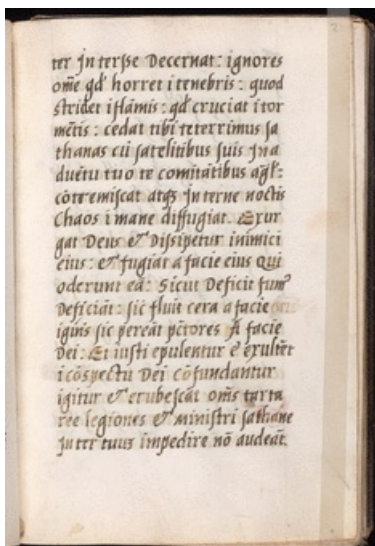 ter Interſſe Decernat: ignores
om̄e qd̕ horret i tenebris: quod
Stridet iflāmis: qd̕ cruciat i tor
mētis: cedat tibi teterrimus ſa
thanas cū ſatelitibus ſuis In a
duētu tuo te comitātibus agl̄:
cōtremiſcat atqȝ In terne noctis
Chaos i mane diffugiat. Exur
gat Deus & Diſſipetur inimici
eius: & fugiāt a facie eius Qui
oderunt eū: Sicut Deficit fum
Deficiāt: ſic̄ fluit cera a facie
ignis ſic pereāt pctores A facie
Dei: Et iusti epulentur & exultēt
i cōſpectu Dei Cōfundantur
igitur & erubeſcāt om̄s tarta
ree legiones & miniſtri ſathane
In ter tuuȝ impedire nō audeāt.